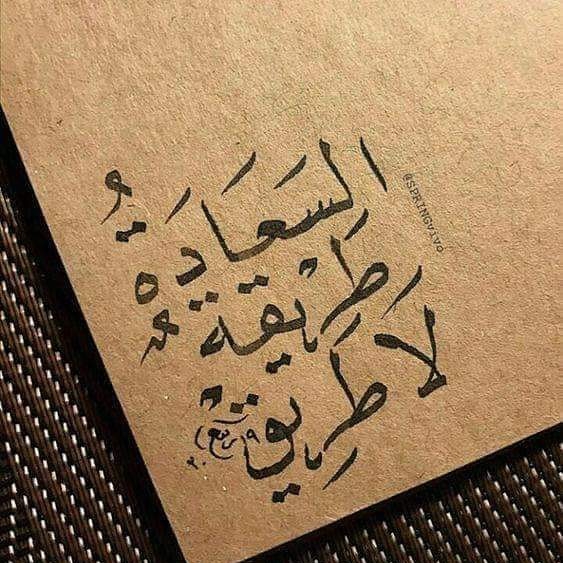 السَّعَادَةُ
طَرِيْقَةٌ
لَا طَرِيقْ
@SPRINGVIVO